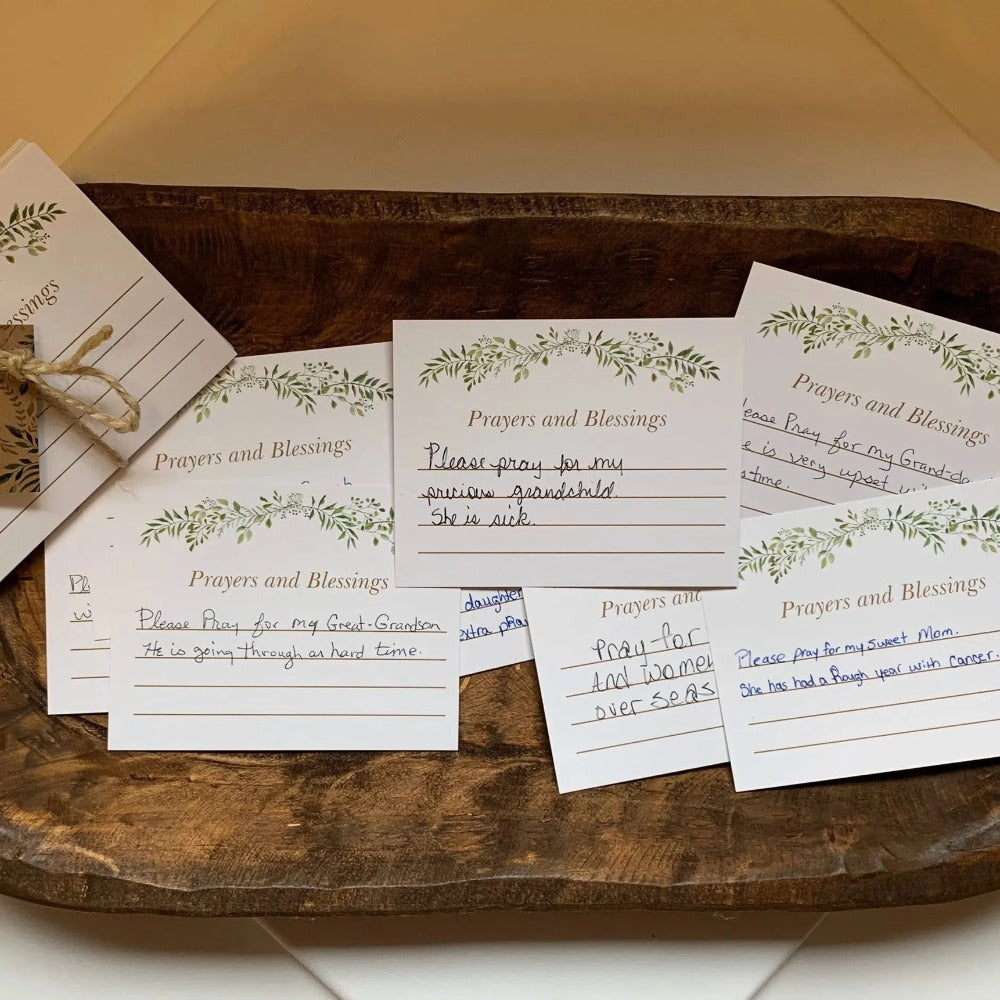 Blessings
Prayers and Blessings
Prayers and Blessings
Please Pray for my Great-Grandson
He is going through as hard time.
daughter
extra
Prayers and Blessings
Please pray for my
precious grandchild.
She is sick.
Prayers
Pray for
And Women
over seas
Prayers and Blessings
Please Pray for my Grand-da
e is very upset
time.
Prayers and Blessings
Please pray for my Sweet Mom.
She has had a Rough year with cancer.